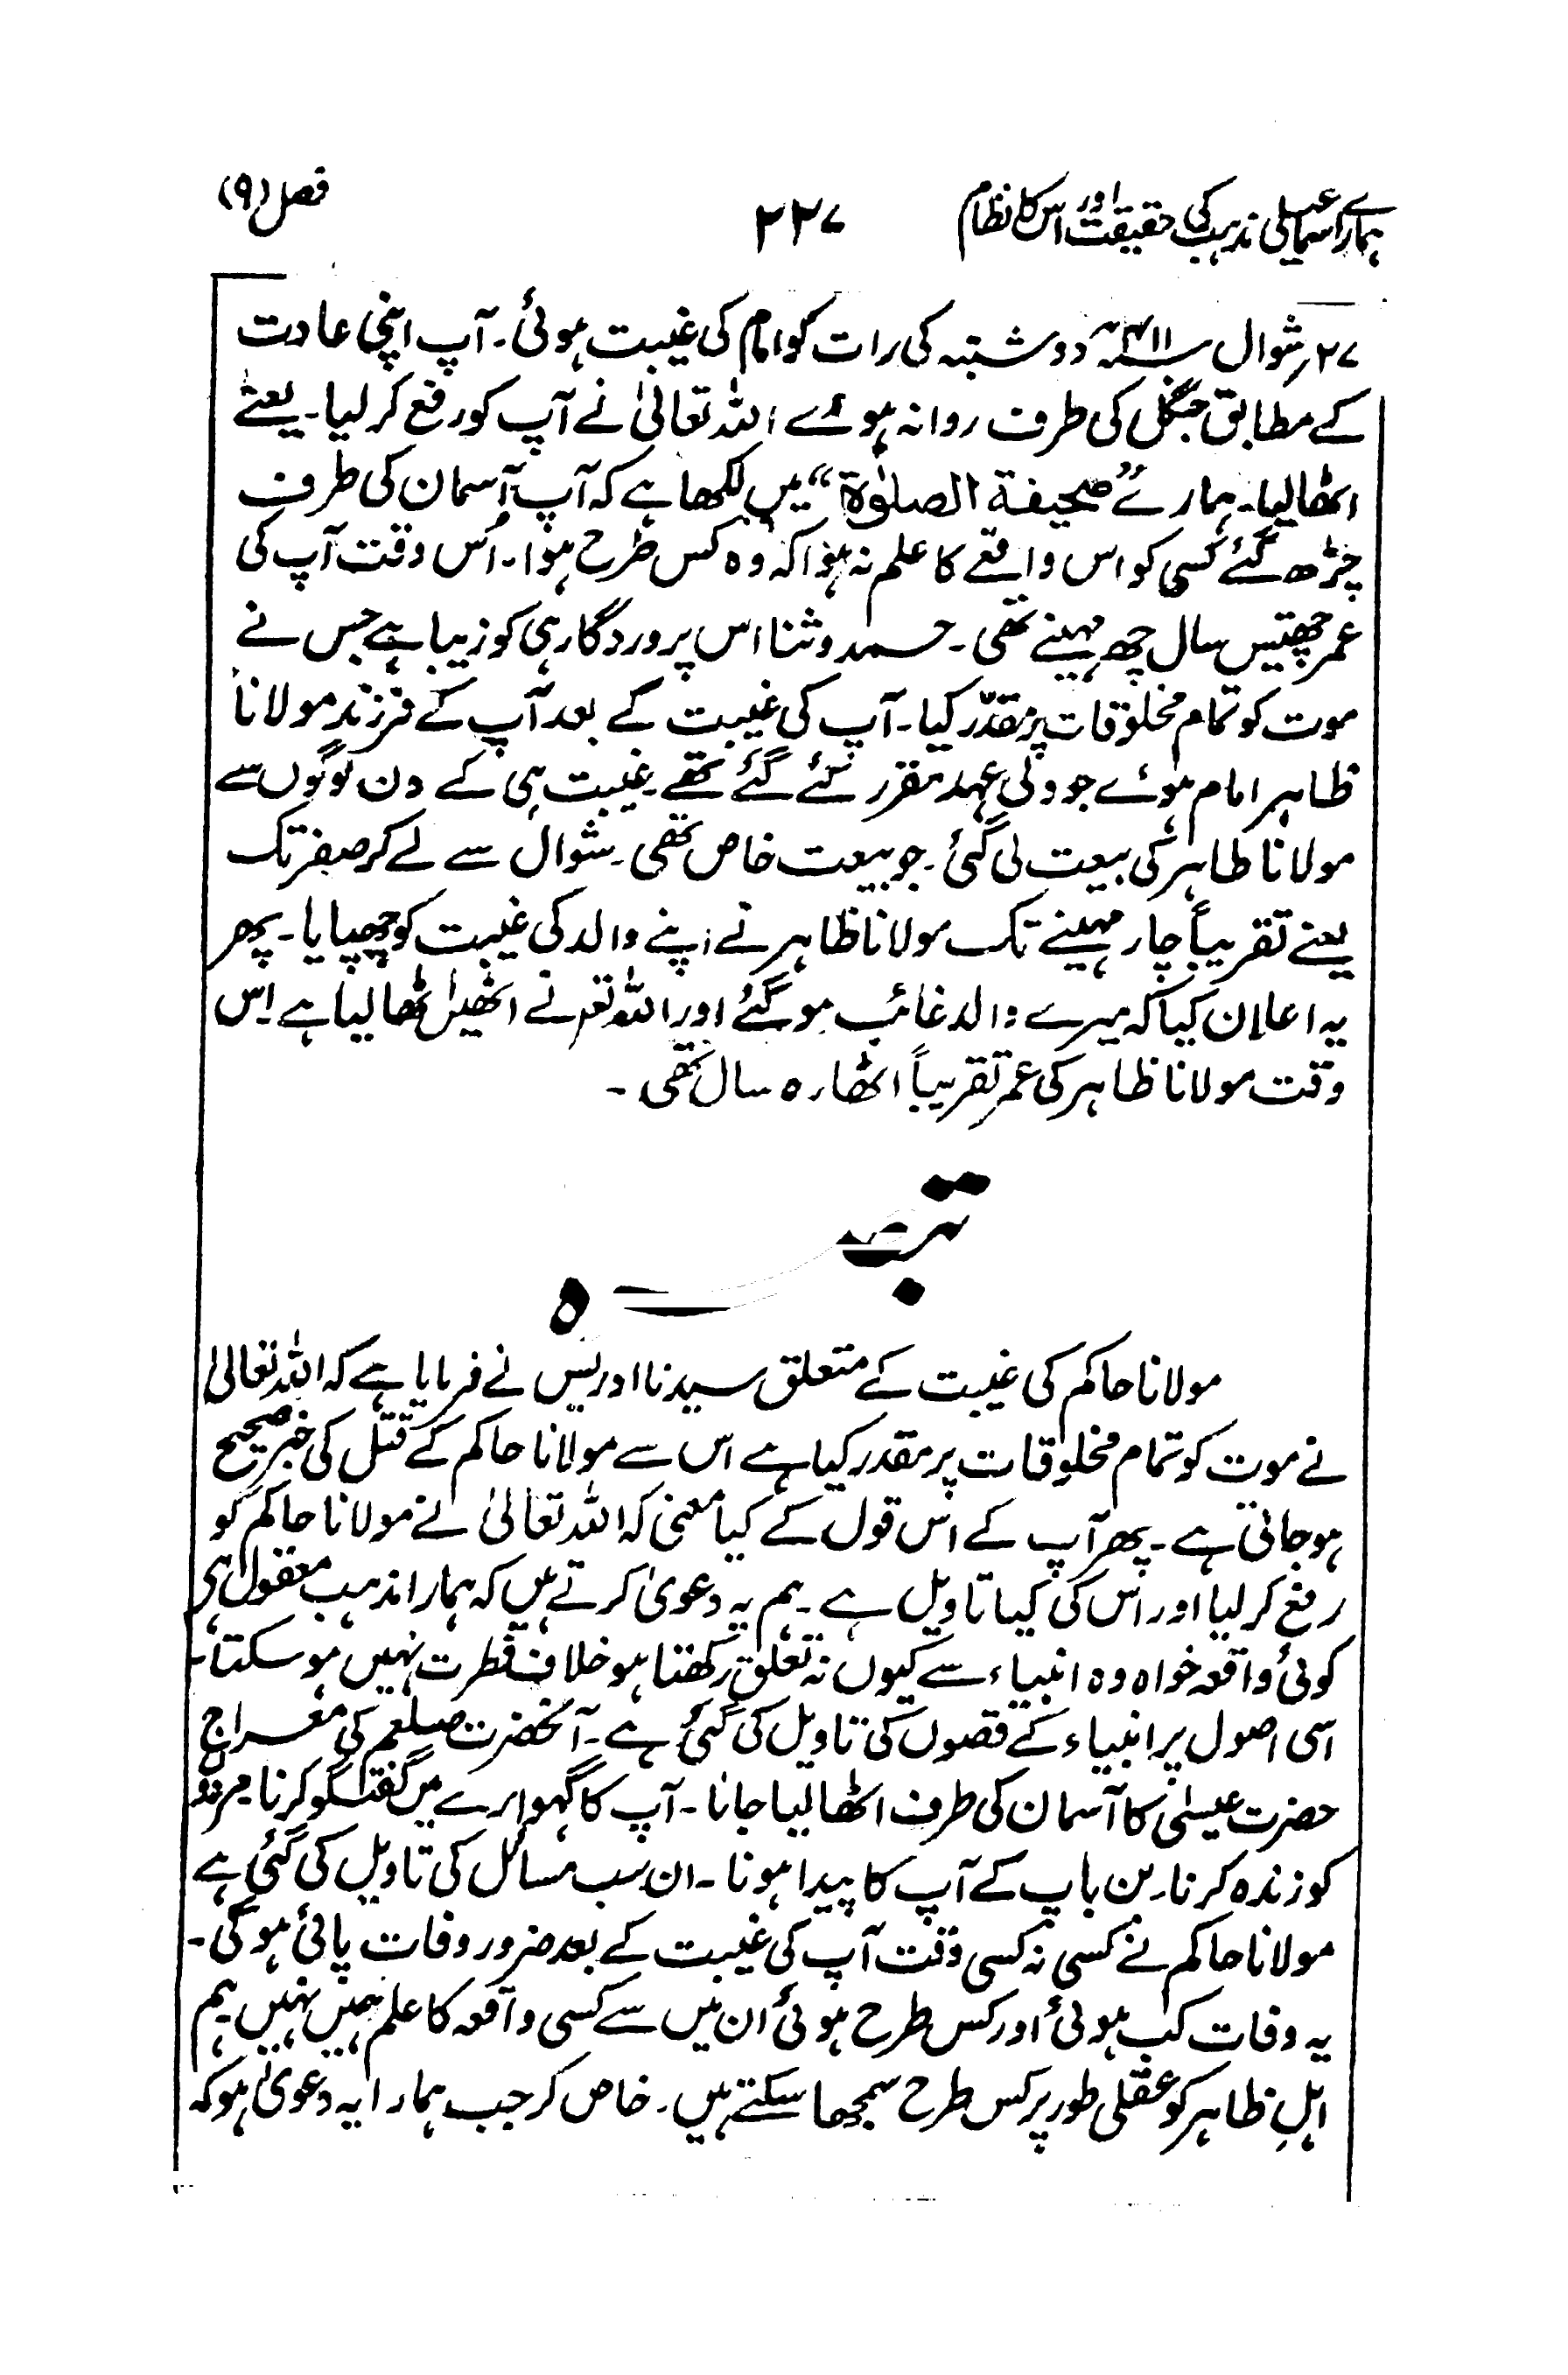 ہمارے اسماعیلی مذہب کی حقیقت اور اس کا نظام ۲۲۷ فصل (۹)
۲۷؍ شوال ۴۱۱ھ دوشنبہ کی رات کو امام کی غیبت ہوئی۔ آپ اپنی عادت
کے مطابق جنگل کی طرف روانہ ہوئے اللہ تعالیٰ نے آپ کو رفع کر لیا۔ یعنے
اٹھا لیا۔ ہمارے ”صحیفۃ الصلوٰۃ“ میں لکھا ہے کہ آپ آسمان کی طرف
چڑھ گئے کسی کو اس واقعے کا علم نہ ہوا کہ وہ کس طرح ہوا۔ اُس وقت آپ کی
عمر چھتیس سال چھ مہینے تھی۔ حمد و ثنا اس پروردگار ہی کو زیبا ہے جس نے
موت کو تمام مخلوقات پر مقدّر کیا۔ آپ کی غیبت کے بعد آپ کے فرزند مولانا
ظاہر امام ہوئے جو ولی عہد مقرر کئے گئے تھے۔ غیبت ہی کے دن لوگوں سے
مولانا ظاہر کی بیعت لی گئی۔ جو بیعت خاص تھی۔ شوال سے لے کر صفر تک
یعنے تقریباً چار مہینے تک مولانا ظاہر نے اپنے والد کی غیبت کو چھپایا۔ پھر
یہ اعلان کیا کہ میرے والد غائب ہو گئے اور اللہ تعہ نے انھیں اٹھا لیا ہے اس
وقت مولانا ظاہر کی عمر تقریباً اٹھارہ سال تھی۔
تبصرہ
مولانا حاکم کی غیبت کے متعلق سیدنا ادریس نے فرمایا ہے کہ اللہ تعالیٰ
نے موت کو تمام مخلوقات پر مقدر کیا ہے اس سے مولانا حاکم کے قتل کی خبر صحیح
ہو جاتی ہے۔ پھر آپ کے اس قول کے کیا معنی کہ اللہ تعالیٰ نے مولانا حاکم کو
رفع کر لیا اور اس کی کیا تاویل ہے۔ ہم یہ دعویٰ کرتے ہیں کہ ہمارا مذہب معقول ہی
کوئی واقعہ خواہ وہ انبیاء سے کیوں نہ تعلق رکھتا ہو خلاف فطرت نہیں ہو سکتا۔
اسی اصول پر انبیاء کے قصوں کی تاویل کی گئی ہے۔ آنحضرت صلعم کی معراج
حضرت عیسٰی کا آسمان کی طرف اٹھا لیا جانا۔ آپ کا گہوارے میں گفتگو کرنا مردوں
کو زندہ کرنا۔ بن باپ کے آپ کا پیدا ہونا۔ ان سب مسائل کی تاویل کی گئی ہے
مولانا حاکم نے کسی نہ کسی وقت آپ کی غیبت کے بعد ضرور وفات پائی ہوگی۔
یہ وفات کب ہوئی اور کس طرح ہوئی ان میں سے کسی واقعہ کا علم ہمیں نہیں ہم
اہلِ ظاہر کو عقلی طور پر کس طرح سمجھا سکتے ہیں۔ خاص کر جب ہمارا یہ دعویٰ ہو کہ